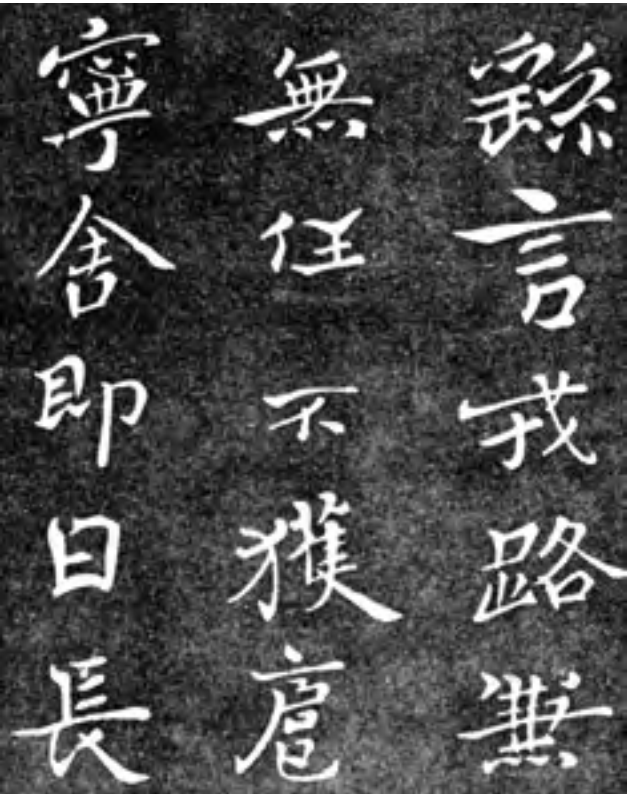 繇言戎路兼
無任不獲扈
寧舍即日長